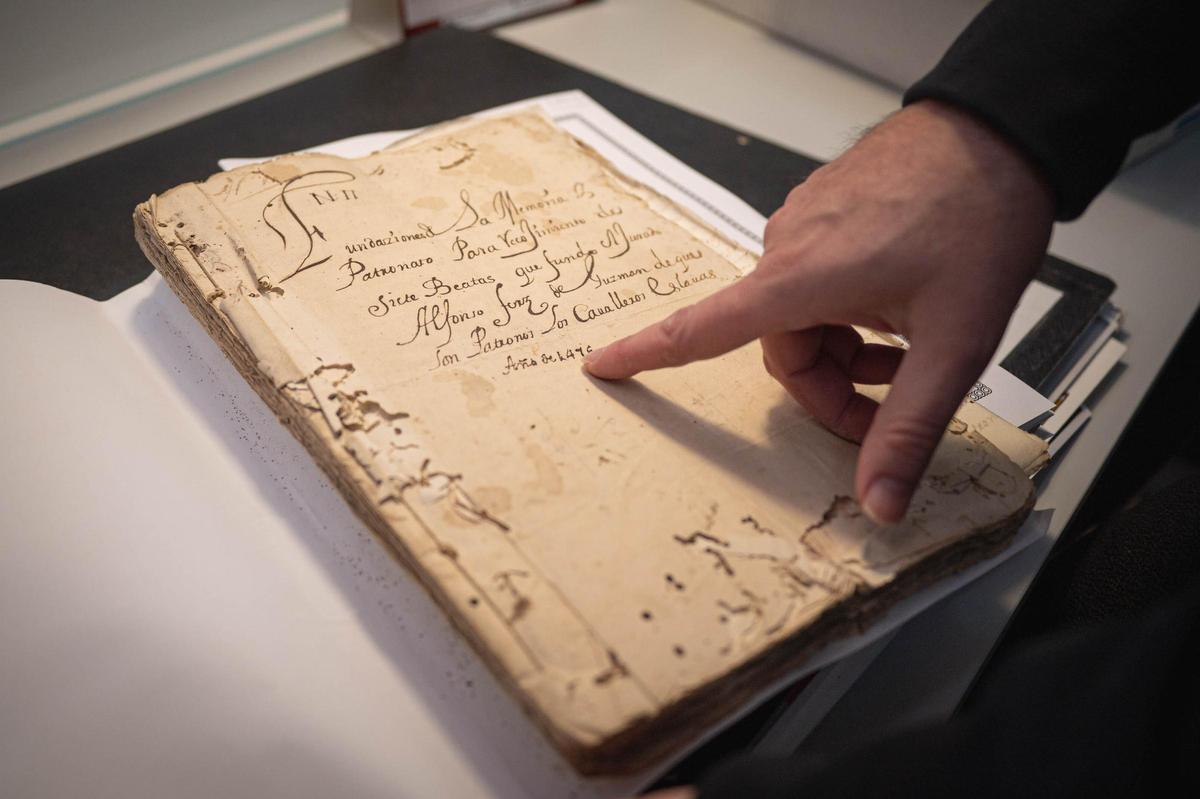 INRI
Fundaziones La Memoria
Patronato Para Recojimiento de
Siete Beatas que fundo
Alfonso fernz de Guzman de que
son Patronos Los Cavalleros Eslavas
Año de 1476